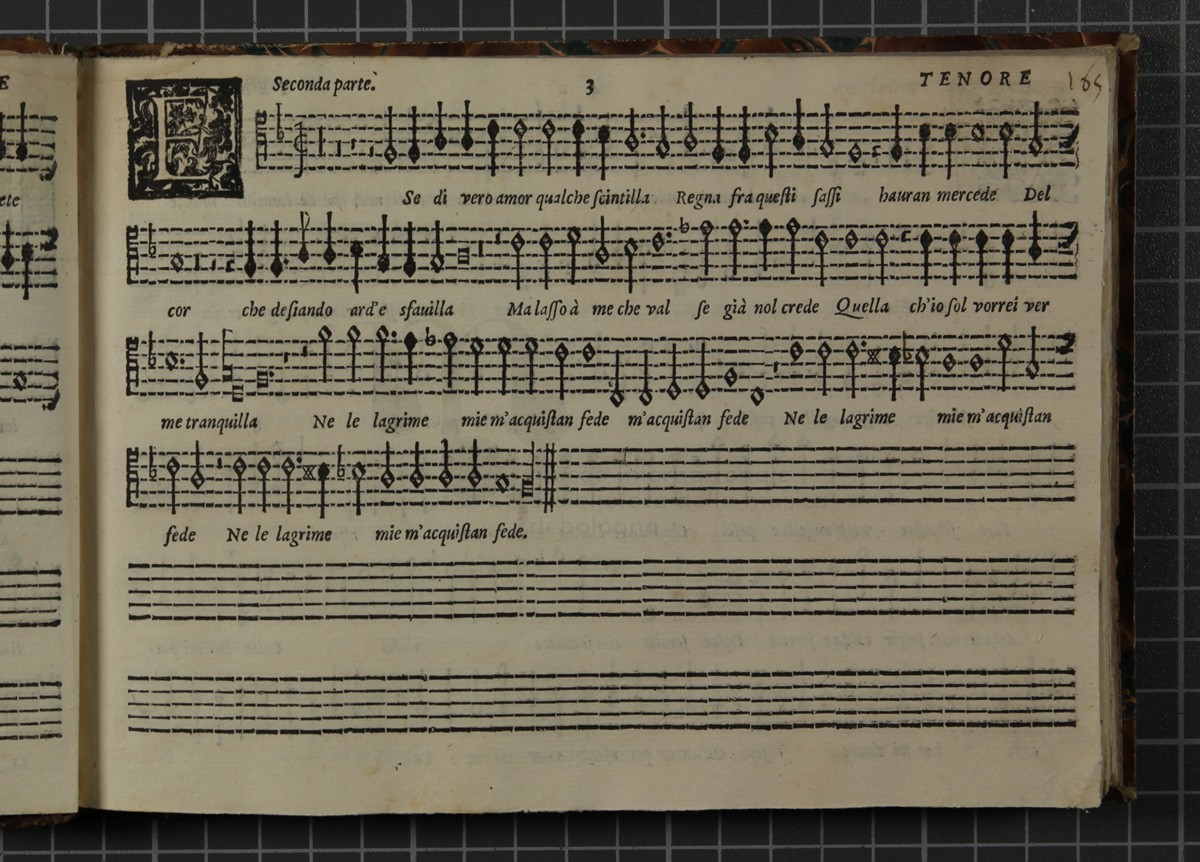 Seconda parte.
3
TENORE
165
E
Se di vero amor qualche ſcintilla Regna fra queſti ſaſſi hauran mercede Del
cor che deſiando ard'e sfauilla Ma laſſo à me che val ſe già nol crede Quella ch'io ſol vorrei ver
me tranquilla Ne le lagrime mie m'acquiſtan fede m'acquiſtan fede Ne le lagrime mie m'acquiſtan
fede Ne le lagrime mie m'acquiſtan fede.